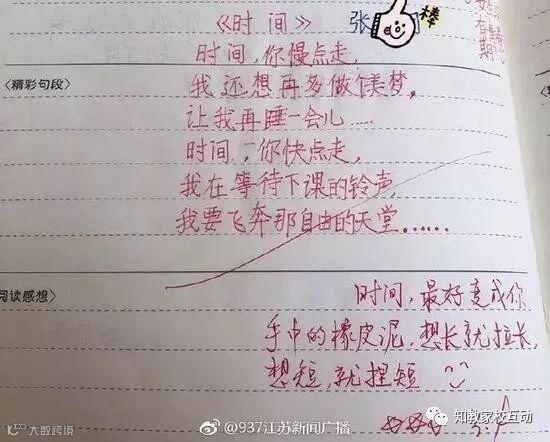 《时间》 张
棒
时间，你慢点走，
〈精彩句段〉
我还想再多做个美梦，
让我再睡一会儿……
时间，你快点走，
我在等待下课的铃声，
我要飞奔那自由的天堂……
阅读感想〉
时间，最好变成你
手中的橡皮泥，想长就拉长，
想短，就捏短
@937江苏新闻广播
知教家校互动
大数跨境